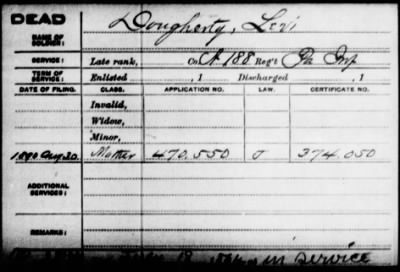 DEAD
NAME OF SOLDIER: Dougherty, Levi
SERVICE: Late rank, Co. A 188 Reg't Pa Inf
TERM OF SERVICE: Enlisted , 1 Discharged , 1
DATE OF FILING. CLASS. APPLICATION NO. LAW. CERTIFICATE NO.
Invalid,
Widow,
Minor,
1890 Aug 30. Mother 470.550 J 374.050
ADDITIONAL SERVICES:
REMARKS:
in service